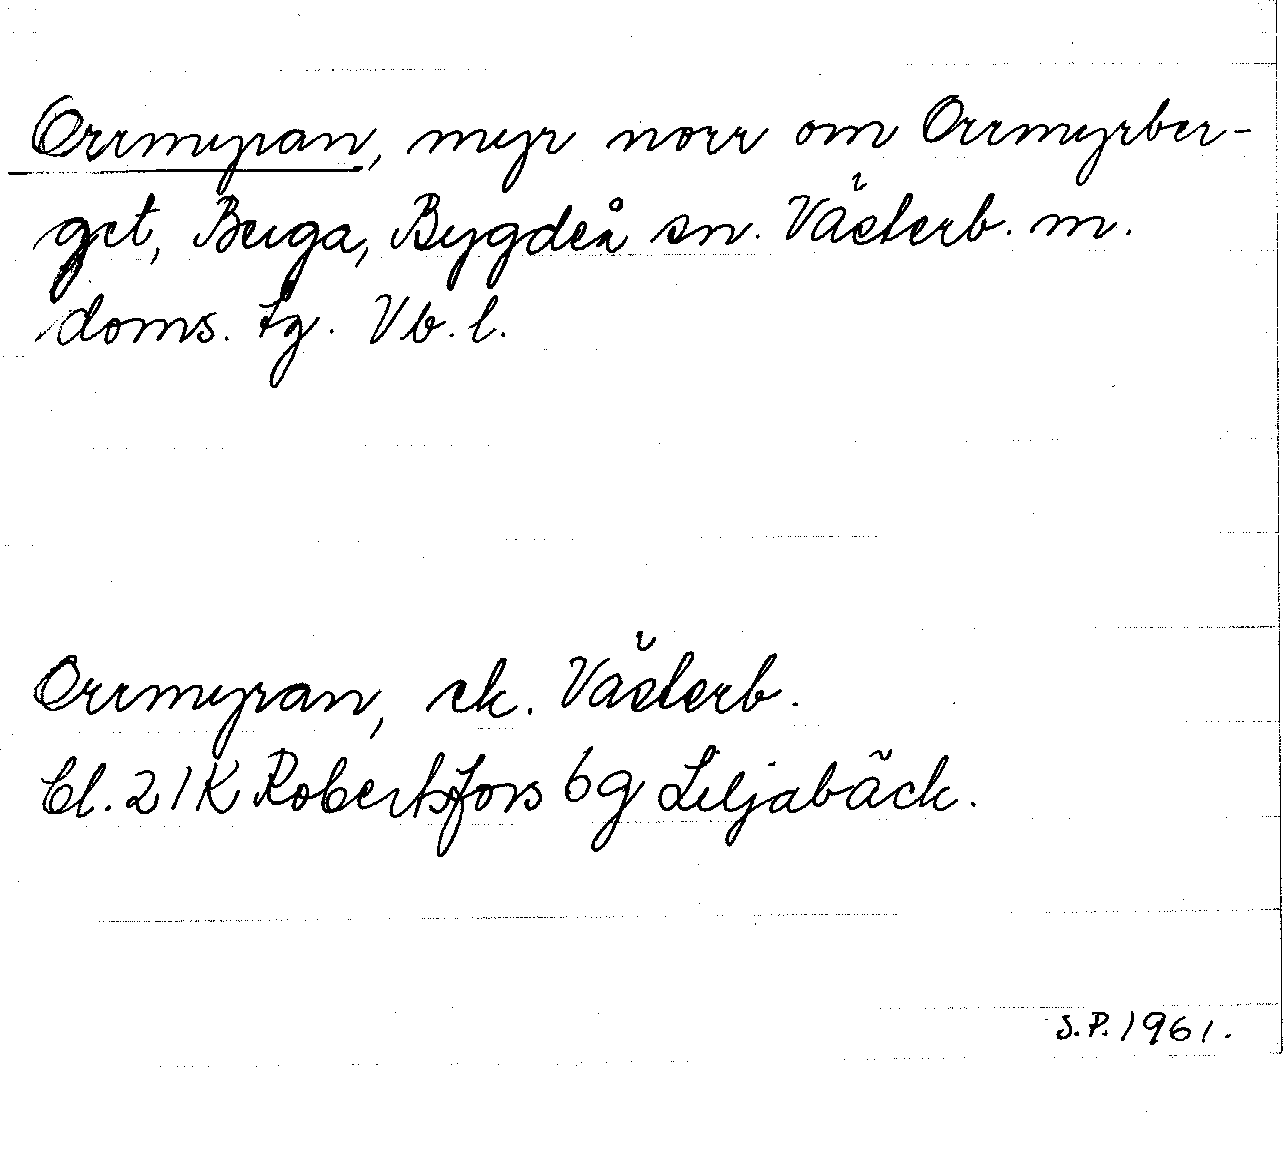 Orrmyran, myr norr om Orrmyrber-
get, Berga, Bygdeå sn. Västerb. m.
doms. tg. Vb. l.
Orrmyran, ek. Västerb.
bl. 21K Robertsfors 6g Liljabäck.
S.P. 1961.